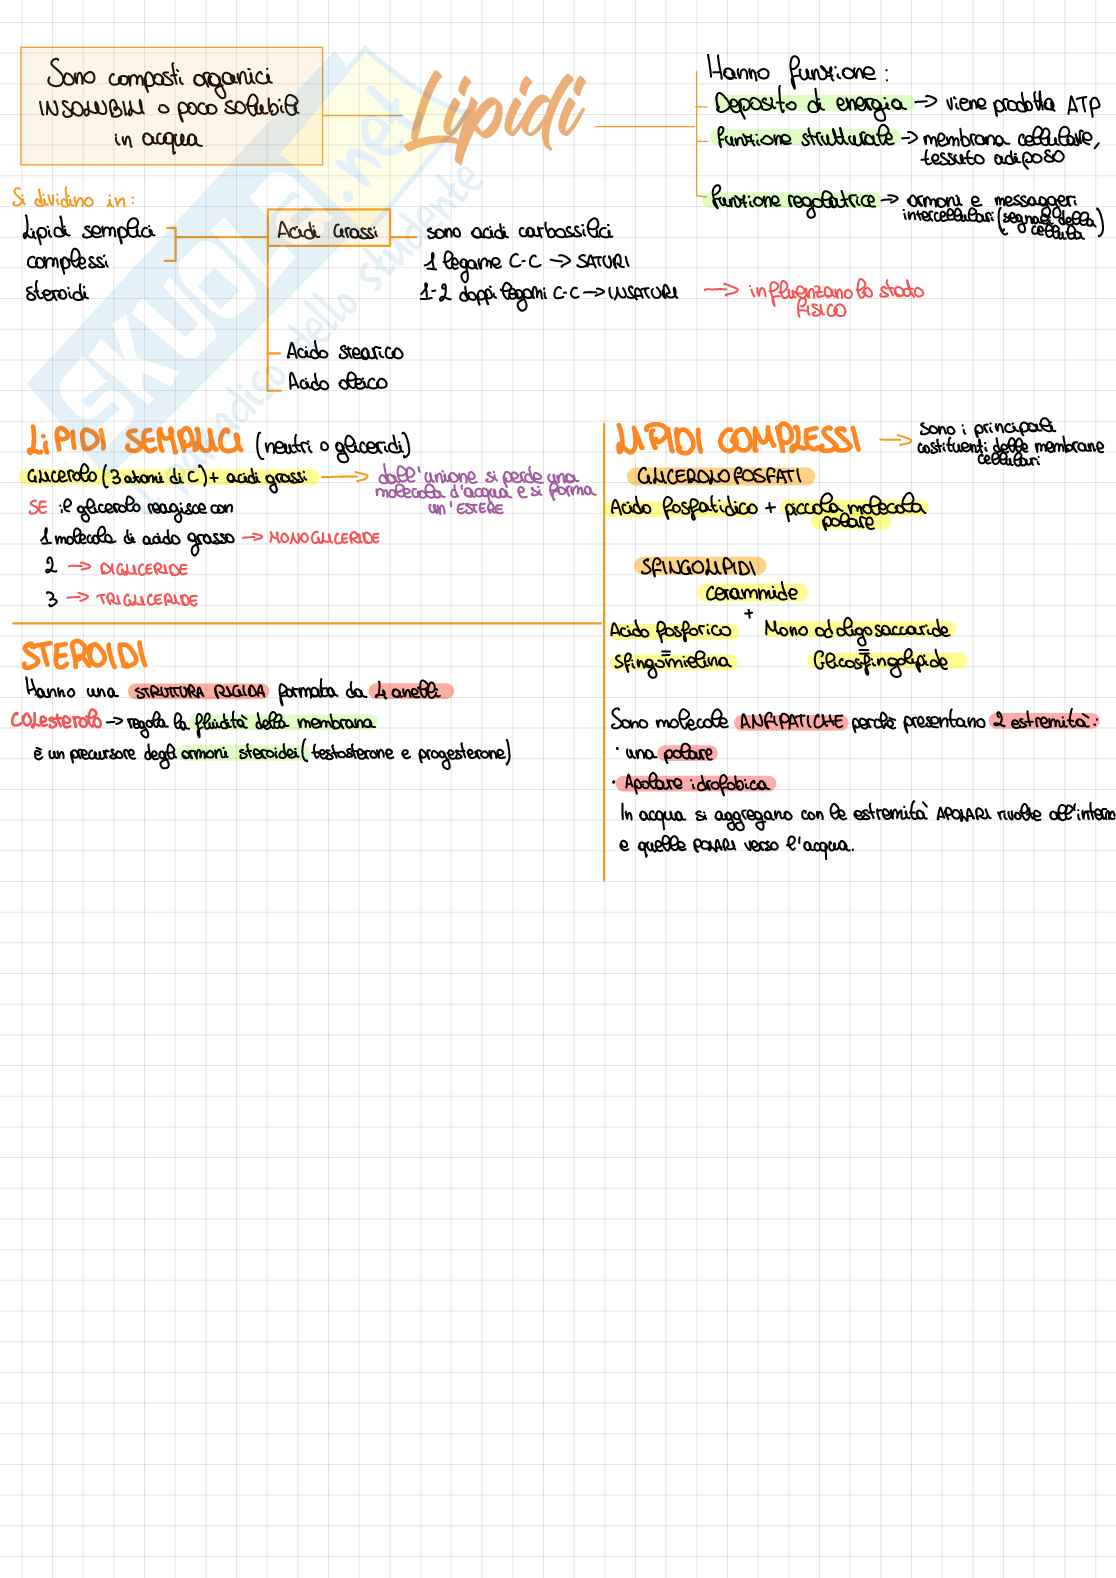 Sono composti organici
INSOLUBILI o poco solubili
in acqua
Lipidi
Hanno funzione:
Deposito di energia → viene prodotta ATP
funzione strutturale → membrana cellulare,
tessuto adiposo
funzione regolatrice → ormoni e messaggeri
intercellulari (segnali della
cellula)
Si dividono in:
Lipidi semplici
complessi
steroidi
Acidi Grassi
sono acidi carbossilici
1 legame C-C → SATURI
1-2 doppi legami C-C → INSATURI → influenzano lo stato
FISICO
Acido stearico
Acido oleico
SKUOLA.net
dello studente
LIPIDI SEMPLICI (neutri o gliceridi)
GLICEROLO (3 atomi di C) + acidi grassi → dall'unione si perde una
molecola d'acqua e si forma
un'ESTERE
SE il glicerolo reagisce con
1 molecola di acido grasso → MONOGLICERIDE
2 → DIGLICERIDE
3 → TRIGLICERIDE
STEROIDI
Hanno una STRUTTURA RIGIDA formata da 4 anelli
COLesterolo → regola la fluidità della membrana
è un precursore degli ormoni steroidei (testosterone e progesterone)
LIPIDI COMPLESSI → sono i principali
costituenti delle membrane
cellulari
GLICEROLOFOSFATI
Acido fosfatidico + piccola molecola
polare
SFINGOLIPIDI
cerammide
+
Acido fosforico Mono od oligosaccaride
= =
Sfingomielina Glicosfingolipide
Sono molecole ANFIPATICHE perchè presentano 2 estremità:
· una polare
· Apolare idrofobica
In acqua si aggregano con le estremità APOLARI rivolte all'interno
e quelle POLARI verso l'acqua.